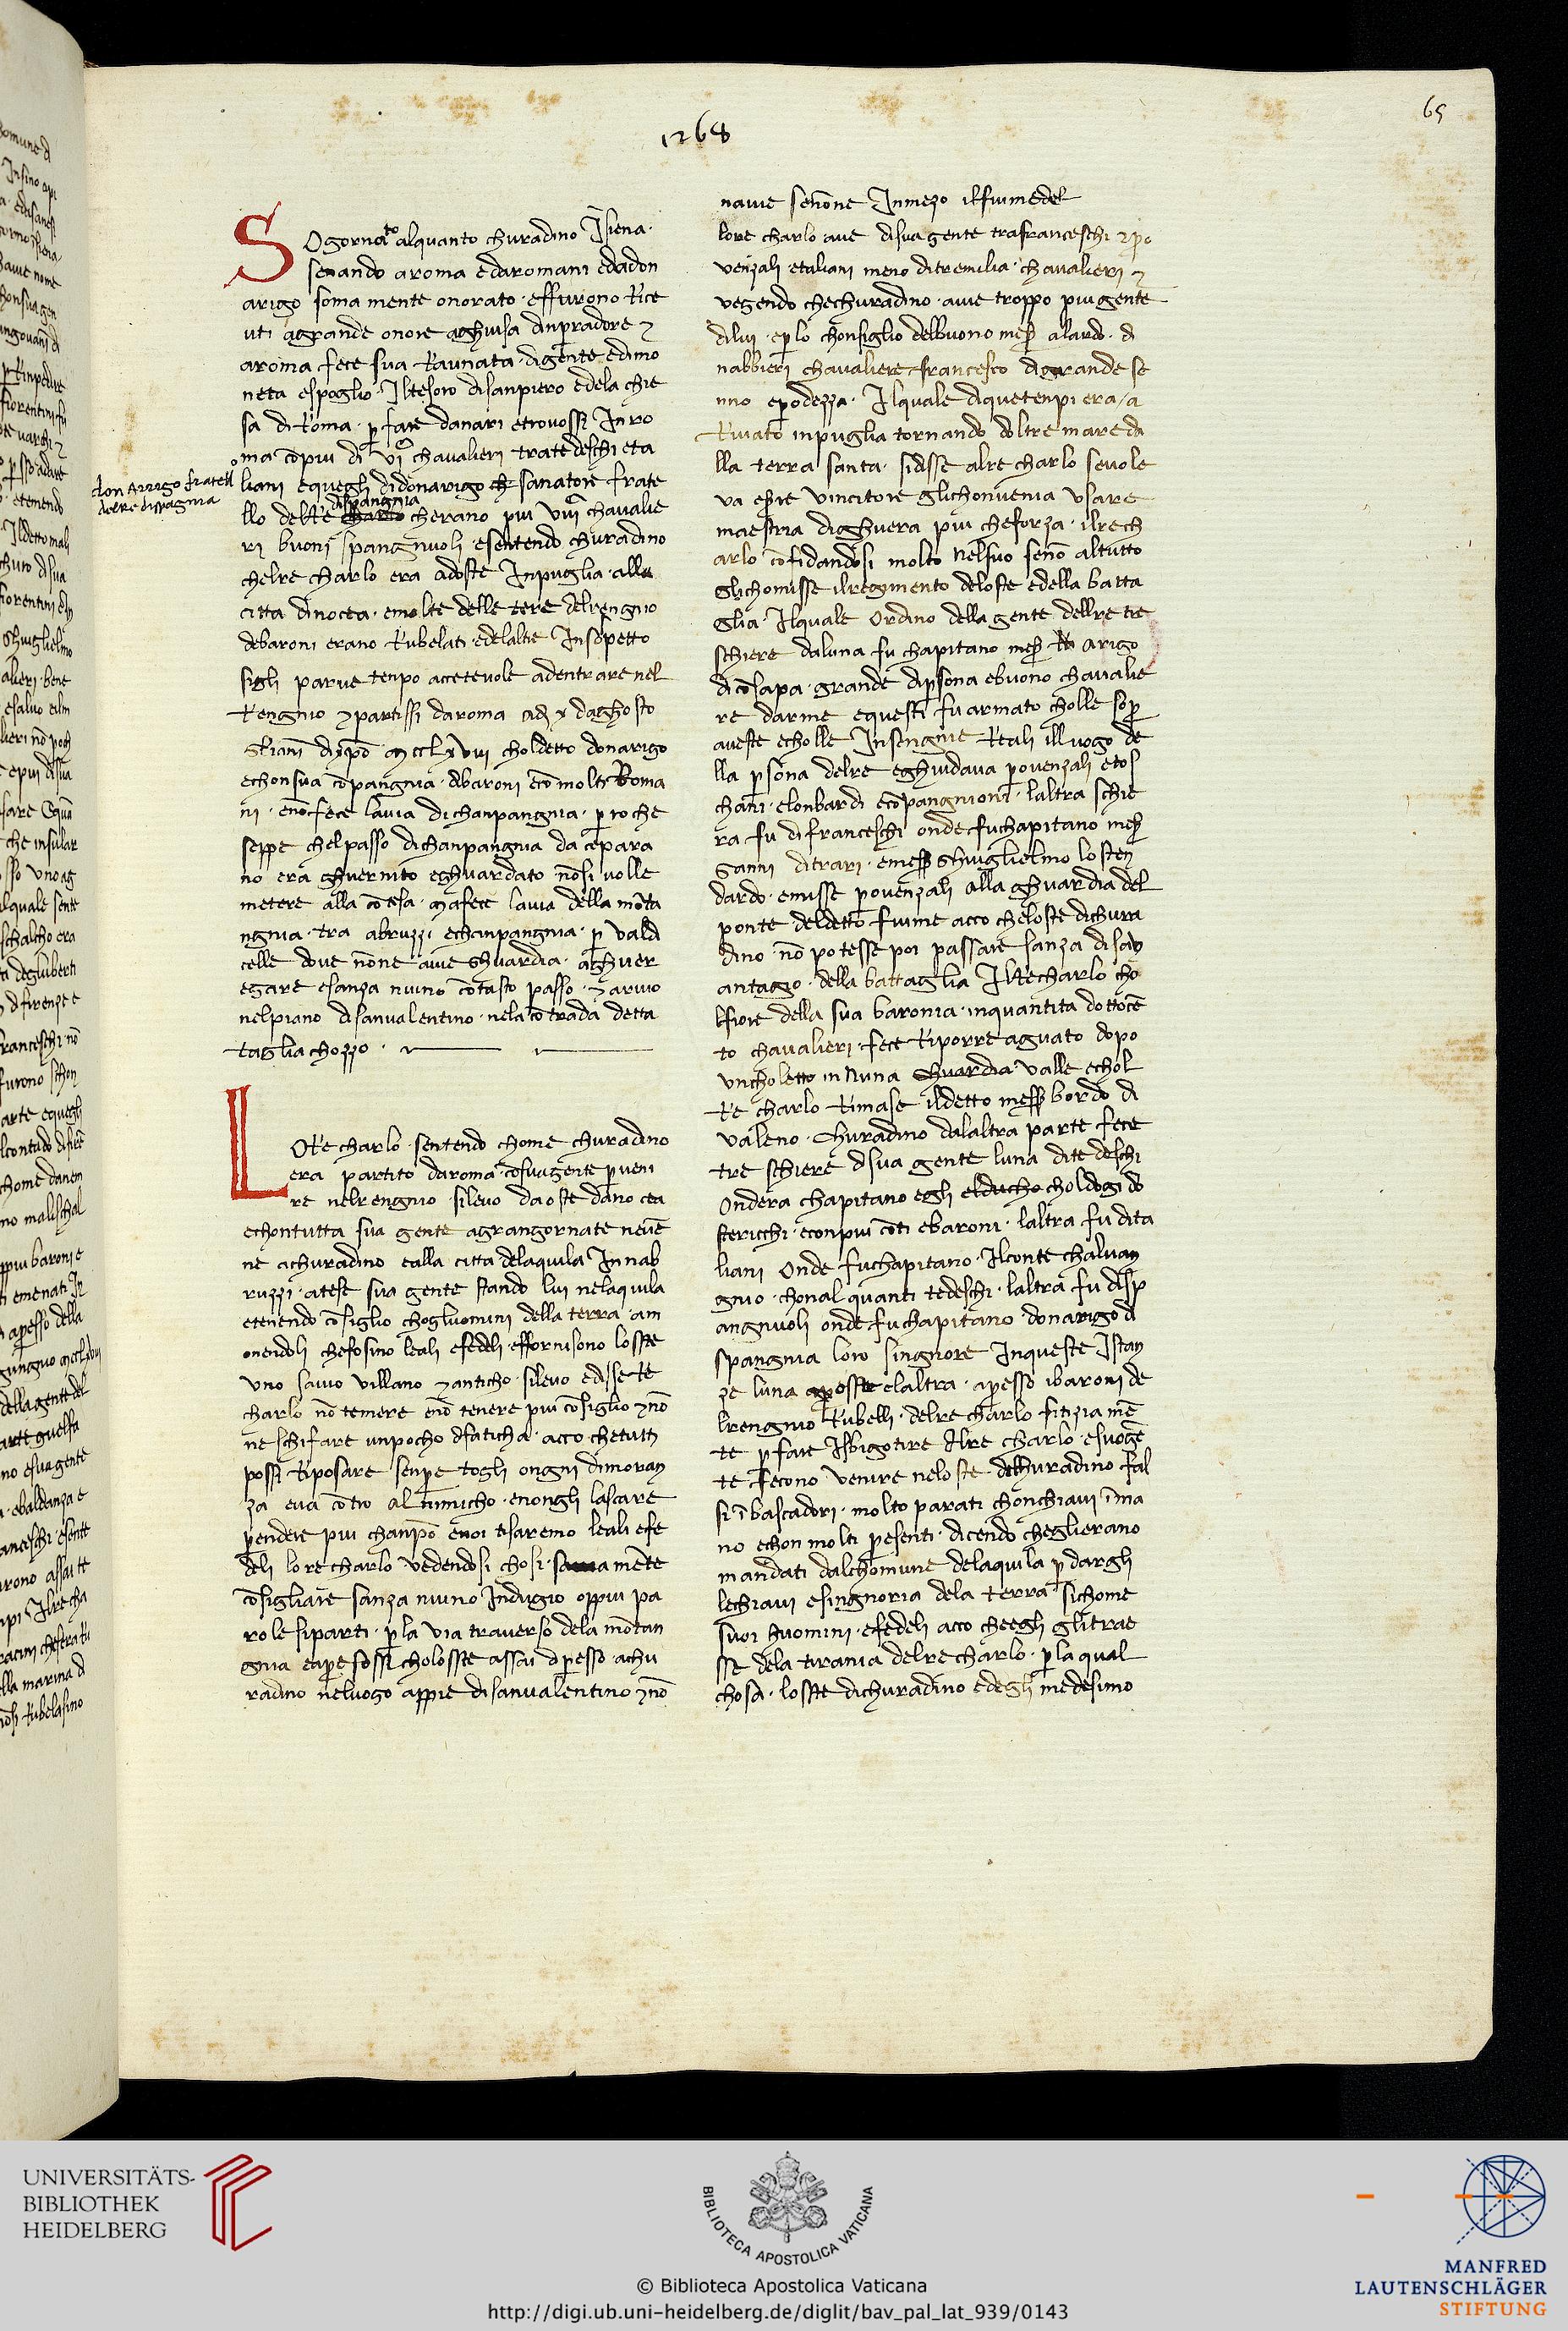 1268
65
SOgornato alquanto churadino Jsiena
senando aroma edaromani edadon
arigo soma mente onorato · effurono Rice
uti agrande onore aghuisa dinpradore ⁊
aroma fece sua Raunata · digente edimo
neta espoglio · Iltesoro disanpiero edela chie
sa di Roma · p fare danari etrovossi Inro
ma cōpiu di chavalieri tratedeschi eta
liani equegli didonarigo sanatore frate
llo delRe dispangnia cherano piu chavalie
ri buoni spangnuoli · esentendo churadino
chelre charlo era adoste Inpuglia · alla
citta dinocea · emolte delle tere delrengno
debaroni erano Rubelati · edelaltre Insospetto
sigli parue tenpo accetevole adentrare nel
Rengnio ⁊ partissi daroma adi x daghosto
choldetto donarigo
echonsua cōpangnia · dibaroni ecō molti Roma
ni · enō fece lauia dichanpangnia · p roche
seppe chelpasso dichanpangnia da cepara
no era ghuernito eghuardato nōsi volle
metere alla cōtesa · mafece lauia della mōta
ngnia · tra abruzzi echanpangnia · p valdi
celle doue nōne aiue ghuardia · aghuer
egare esanza niuno cōtasto passo · ⁊ ariuo
nelpiano disanualentino · nela cōtrada detta
taglia chozzo ·
don Arrigo fratello
delre dispagnia
LORe charlo · sentendo chome churadino
era partito daroma · cōsuagente p veni
re nelrengnio · sileuo da oste dano cea
echontutta sua gente agrangornate neuē
ne achuradino ealla citta delaquila Innab
ruzzi · atese sua gente stando lui nelaquila
etenendo cōsiglio chogluomini della terra · am
onendoli chefosino leali efedeli · effornisono loste
uno sauio villano ⁊ anticho · sileuo edisse Re
charlo nō temere enō tenere piu cōsiglio ⁊ nō
ne schifare unpocho dfaticha · acco chetutti
possi Riposare senpre togli ongni dimoran
za eua cōtro al nimicho · enongli lasciare
prendere piu chanpō enoi tisaremo leali efe
deli lo re charlo vedendosi chosi · mēte
cōsigliare sanza niuno Indugio oppiu pa
role siparti · p la via trauerso dela mōtan
gnia eapresossi cholosste assai dipresso · achu
radino neluogo appie disanualentino ⁊ nō
naiue senōne Inmezo ilfiumedel
lore charlo aue disua gente trafranceschi ⁊ po
venzali · etaliani meno ditremilia · chavalieri ⁊
vegendo chechuradino · aiue troppo piu gente
dilui · eplo chonsiglio delbuono alardo · di
nabbieri chavaliere francesco digrande se
nno eprodezza · Ilquale diquetenpi era / a
Riuato inpuglia tornando doltre mare da
lla terra santa · sidisse alre charlo seuole
va esere vincitore glichonuenia usare
maestria dighuera piu cheforza · ilrech
arlo cōfidandosi molto nelsuo senō altutto
glichomisse ilregimento deloste edella batta
glia · Ilquale Ordino della gente dellre tre
schiere daluna fu chapitano arigo
di cōsapa · grande dipsona ebuono chavalie
re darme equesti fu armato cholle sopr
aueste echolle Insengnie Reali illuogo de
lla psona delre eghuidaua prouenzali etos
chani · elonbardi ecōpangnioni · laltra schie
ra fu di franceschi onde fuchapitano
Gianni ditrari · emess ghuiglielmo losten
dardo · emisse prouenzali alla ghuardia del
ponte deldetto fiume acco cheloste dichura
dino nō potesse poi passare sanza disav
antago · della battaglia Il Re charlo cho
lfiore della sua baronia · inquantita dottocē
to chavalieri · fece Riporre aguato dopo
uncholetto in Nuna valle echol
Re charlo Rimase · ildetto mess bordo di
valeno · churadino dalaltra parte fece
tre schiere disua gente luna ditedeschi
Ondera chapitano egli choldogi do
stericchi · econpiu cōti ebaroni · laltra fu dita
liani Onde fuchapitano · Ilconte chaluan
gnio · chonalquanti tedeschi · laltra fu disp
angnuoli onde fu chapitano · donarigo di
spangnia loro singnore Inqueste Istan
ze luna oste elaltra · apresso ibaroni de
lrengnio Rubelli · delre charlo · fitizia mē
te p fare Isbigotire Ilre charlo · esuogē
te fecono venire neloste · dichuradino fal
si ībasciadori · molto parati chonchiaui ī ma
no echon molti presenti · dicendo cheglierano
mandati dalchomune delaquila p dargli
lechiaui esingnoria dela terra sichome
suoi huomini · efedeli acco cheegli glitrae
sse dela tirania delre charlo · p la qual
chosa · losste dichuradino edegli medesimo
UNIVERSITÄTS-
BIBLIOTHEK
HEIDELBERG
BIBLIOTECA APOSTOLICA VATICANA
© Biblioteca Apostolica Vaticana
http://digi.ub.uni-heidelberg.de/diglit/bav_pal_lat_939/0143
MANFRED
LAUTENSCHLÄGER
STIFTUNG